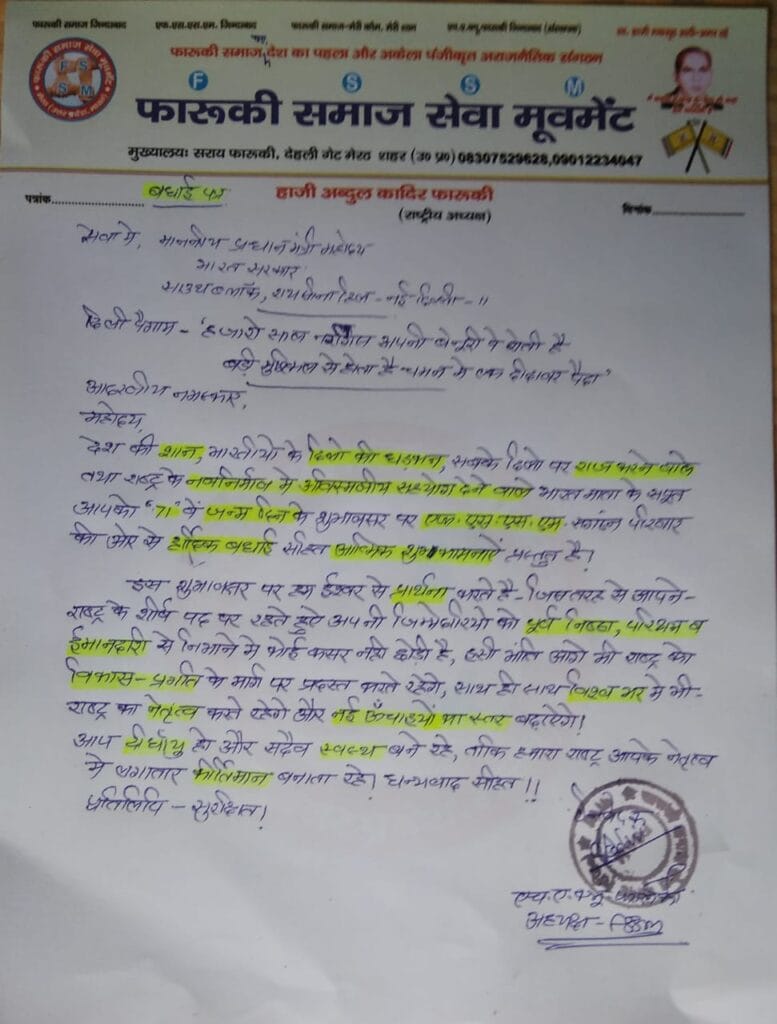 फारूकी समाज जिन्दाबाद एफ.एस.एस.एम. जिन्दाबाद फारूकी समाज-मेरी कौम, मेरी शान एच.ए.क्यू.फारूकी जिन्दाबाद (संस्थापक)
फारूकी समाज, देश का पहला और अकेला पंजीकृत अराजनैतिक संगठन
F S S M
फारूकी समाज सेवा मूवमेंट
मुख्यालयः सराय फारूकी, देहली गेट मेरठ शहर (उ० प्र०) 08307529628,09012234047
पत्रांक बधाई पत्र हाजी अब्दुल कादिर फारूकी दिनांक
(राष्ट्रीय अध्यक्ष)
सेवा मे, माननीय प्रधानमंत्री महोदय
भारत सरकार
साउथ ब्लॉक, रायसीना हिल - नई दिल्ली - 11
दिली पैगाम - 'हजारो साल नर्गिस अपनी बेनूरी पे रोती है
बड़ी मुश्किल से होता है चमन मे एक दीदावर पैदा'
आदरणीय नमस्कार,
महोदय,
देश की शान, भारतीयो के दिलो की धड़कन, सबके दिलो पर राज करने वाले
तथा राष्ट्र के नवनिर्माण मे अविस्मणीय सहयोग देने वाले भारत माता के सपूत
आपको '71' वें जन्म दिन के शुभावसर पर एफ.एस.एस.एम. संगठन परिवार
की ओर से हार्दिक बधाई सहित आत्मिक शुभकामनाऐं प्रस्तुत है।
इस शुभावसर पर हम ईश्वर से प्रार्थना करते है - जिस तरह से आपने -
राष्ट्र के शीर्ष पद पर रहते हुऐ अपनी जिम्मेदारियो को पूर्ण निष्ठा, परिश्रम व
ईमानदारी से निभाने मे कोई कसर नही छोड़ी है, इसी भांति आगे भी राष्ट्र को
विकास - प्रगति के मार्ग पर प्रदस्त करते रहेंगे, साथ ही साथ विश्व भर मे भी -
राष्ट्र का नेतृत्व करते रहेगे और नई ऊँचाइयों का स्तर बढ़ाऐंगे।
आप दीर्घायु हो और सदैव स्वस्थ बने रहे, ताकि हमारा राष्ट्र आपके नेतृत्व
मे लगातार कीर्तिमान बनाता रहे। धन्यवाद सहित।।
प्रतिलिपि - सुरक्षित।
एच.ए.क्यू फारूकी
अध्यक्ष - FSSM